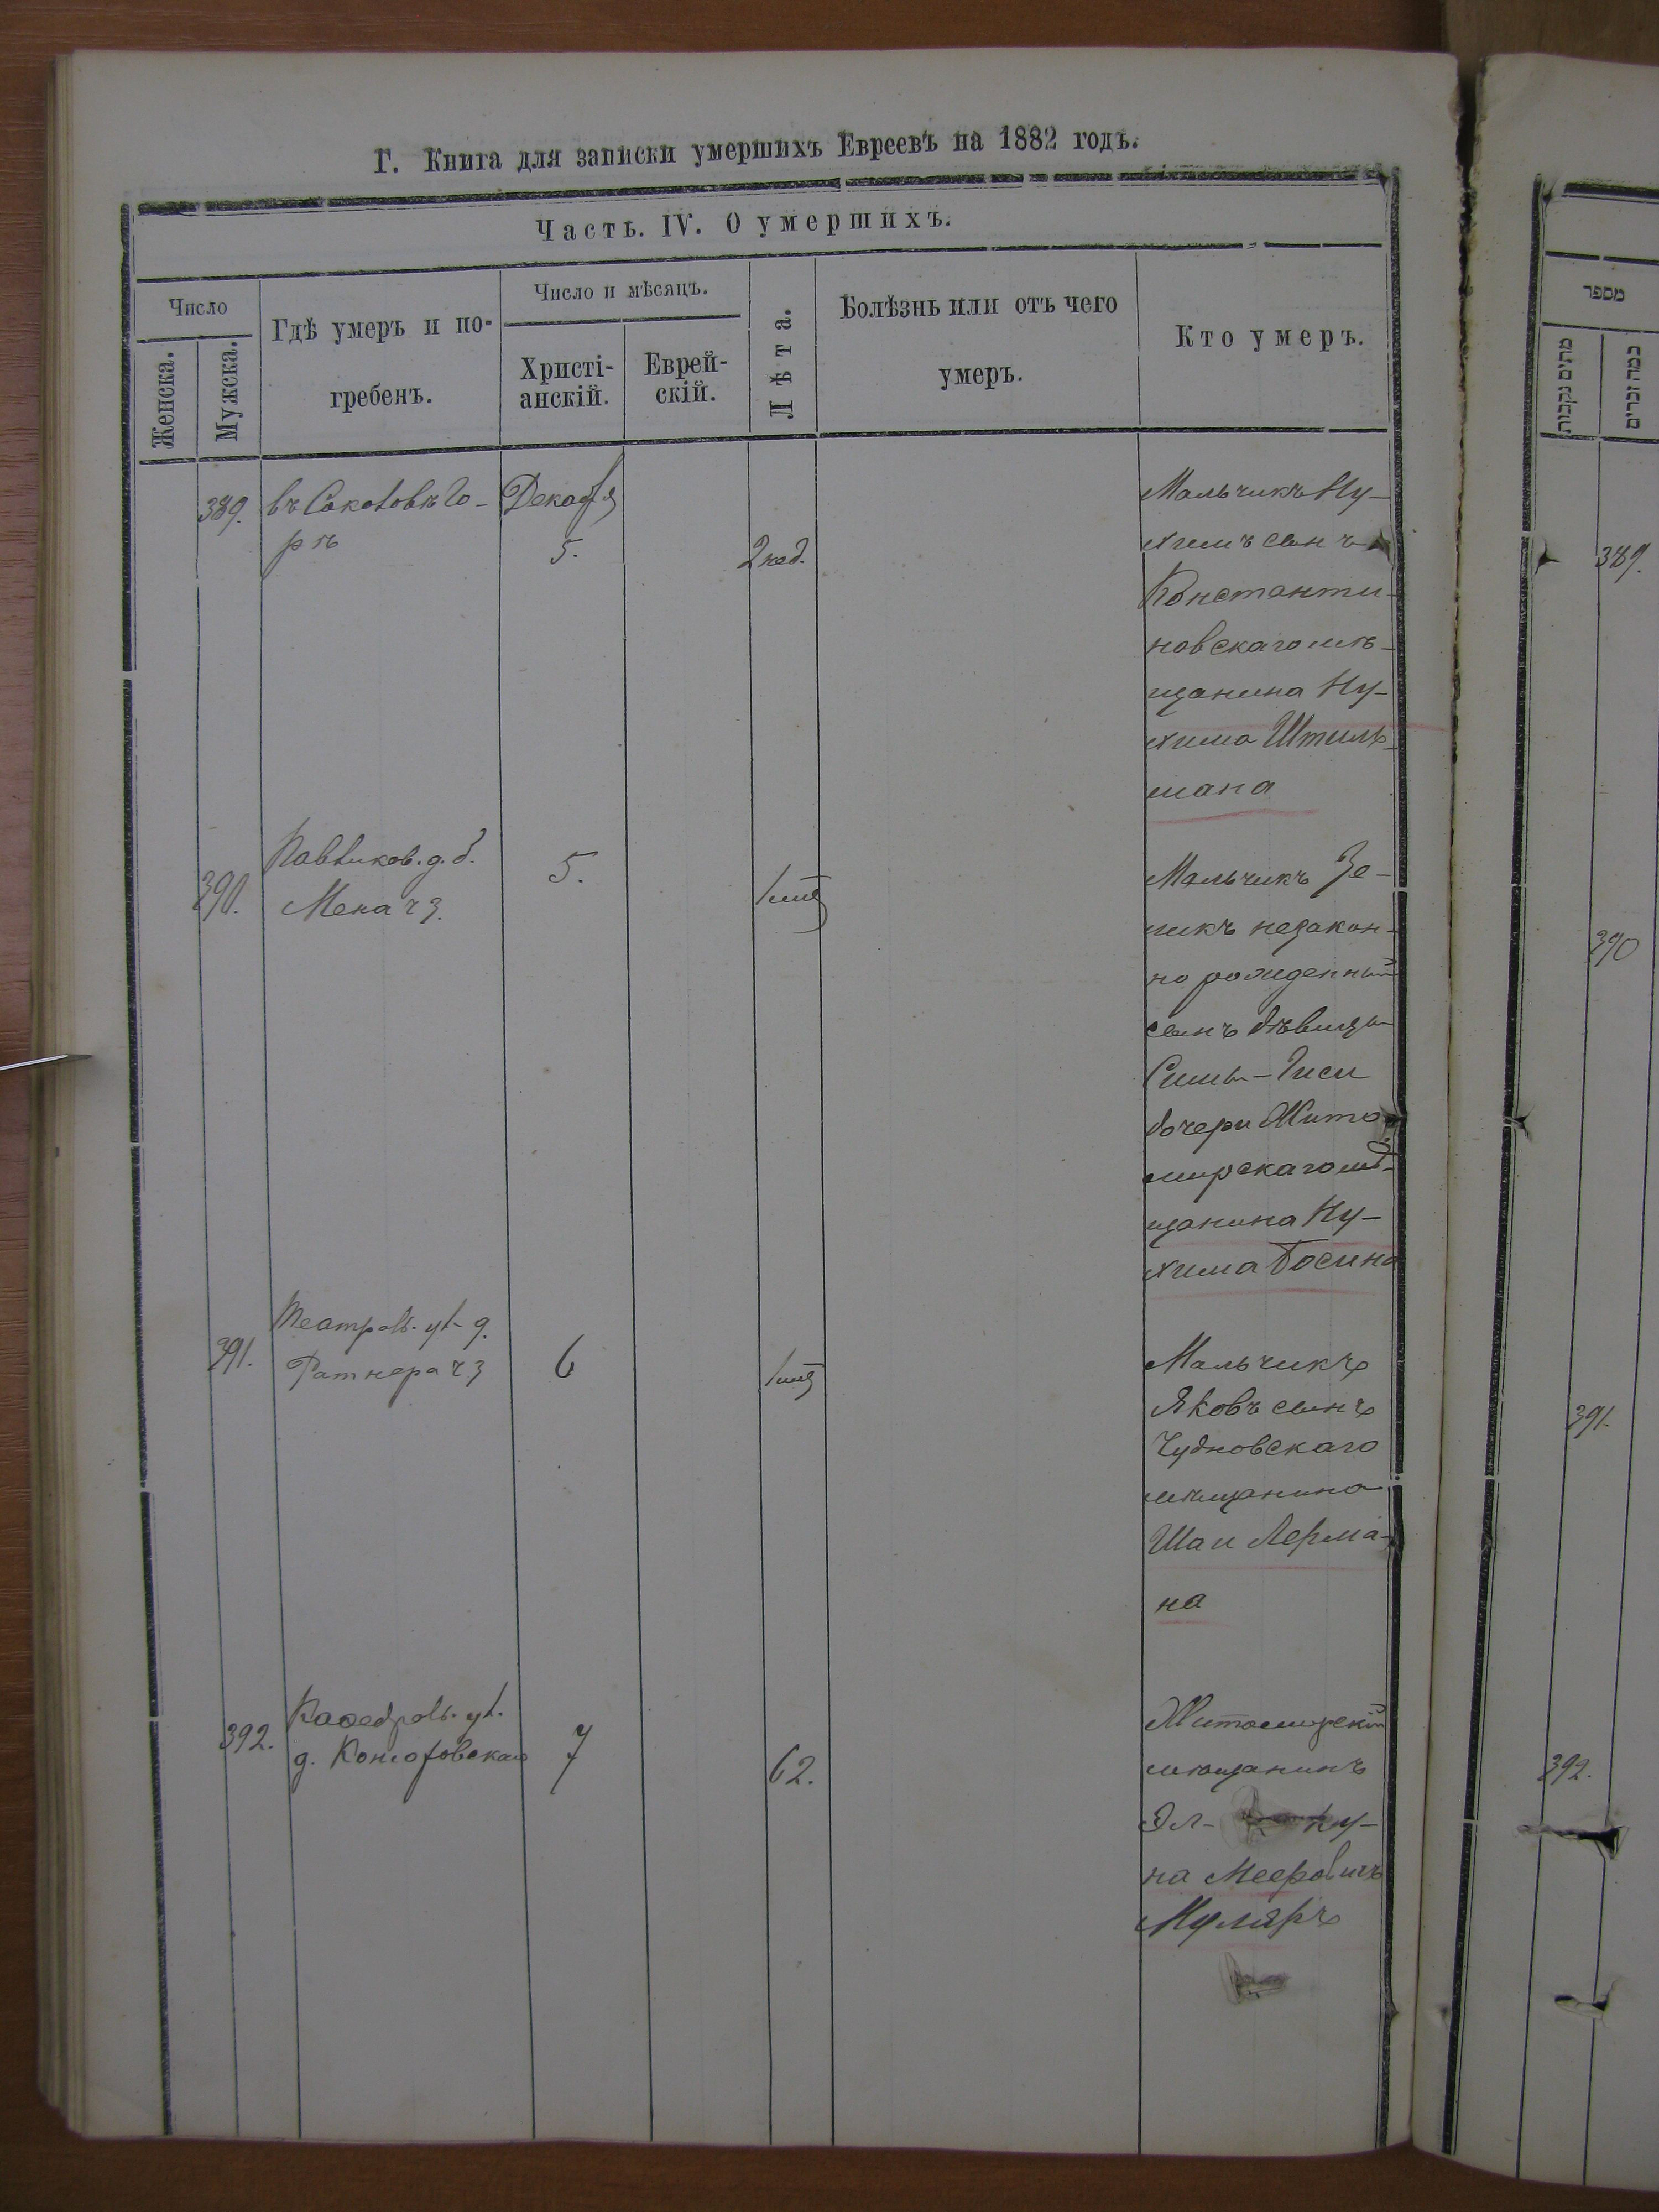 Г. Книга для записки умершихъ Евреевъ на 1882 годъ.
Часть. IV. О умершихъ.
Число
Женска.
Мужска.
Гдѣ умеръ и по-
гребенъ.
Число и мѣсяцъ.
Христі-
анскій.
Еврей-
скій.
Лѣта.
Болѣзнь или отъ чего
умеръ.
Кто умеръ.
מספר
מתים נקבות
כמה זכרים
389.
въ Соколовѣ Го-
рѣ
Декабря
5.
2 нед.
Мальчикъ Ну-
химъ сынъ
Константи-
новскаго мѣ-
щанина Ну-
хима Штиль-
мана
389.
390.
д.
5.
1 мцъ
Мальчикъ Зе-
ликъ незакон-
но рожденный
сынъ дѣвицы
Симы-Гиси
дочери Жито-
мирскаго мѣ-
щанина Ну-
хима Босина
390
391.
Театрал. ул. д.
Ратнера
6
1 мцъ
Мальчикъ
Яковъ сынъ
Чудновскаго
мѣщанина
Шаи Лерма-
на
391.
392.
Каѳедрал. ул.
д. Коморовскаго
7
62.
Житомирскій
мѣщанинъ
Эл- ку-
на Мееровичъ
Муляръ
392.